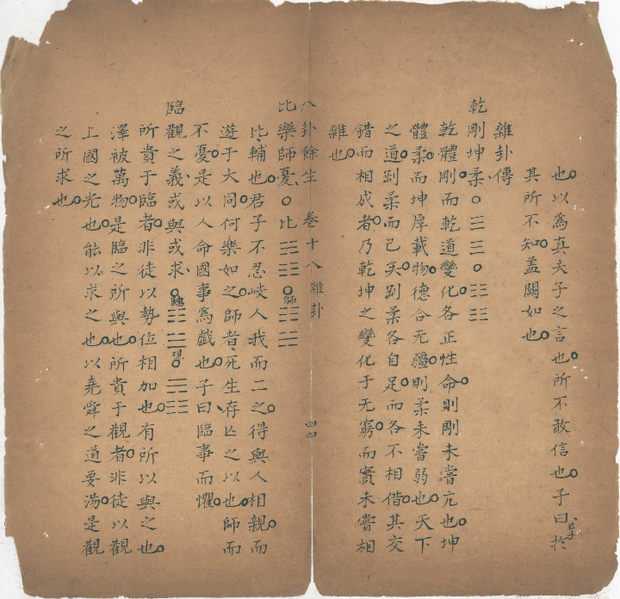 也以為真夫子之言也所不敢信也子曰於
其所不知蓋闕如也
雜卦傳
乾剛坤柔○☰☰○☷☷
乾體剛而乾道變化各正性命則剛未嘗亢也坤
體柔而坤厚載物德合无疆則柔未嘗弱也天下
之道剛柔而已矣剛柔各自足而各不相借其交
錯而相成者乃乾坤之變化于无窮而實未嘗相
雜也
八卦餘生 卷十八雜卦 四四
比樂師憂○比☵☷○師☷☵
比輔也君子不忍岐人我而二之得與人相親而
遊于大同何樂如之師者死生存亡之以也師而
不憂是以人命國事為戲也子曰臨事而懼
臨觀之義或與或求○
所貴于臨者非徒以勢位相加也有所以與之也
澤被萬物是臨之所與也所貴于觀者非徒以觀
上國之光也能以求之也以堯舜之道要湯是觀
之所求也